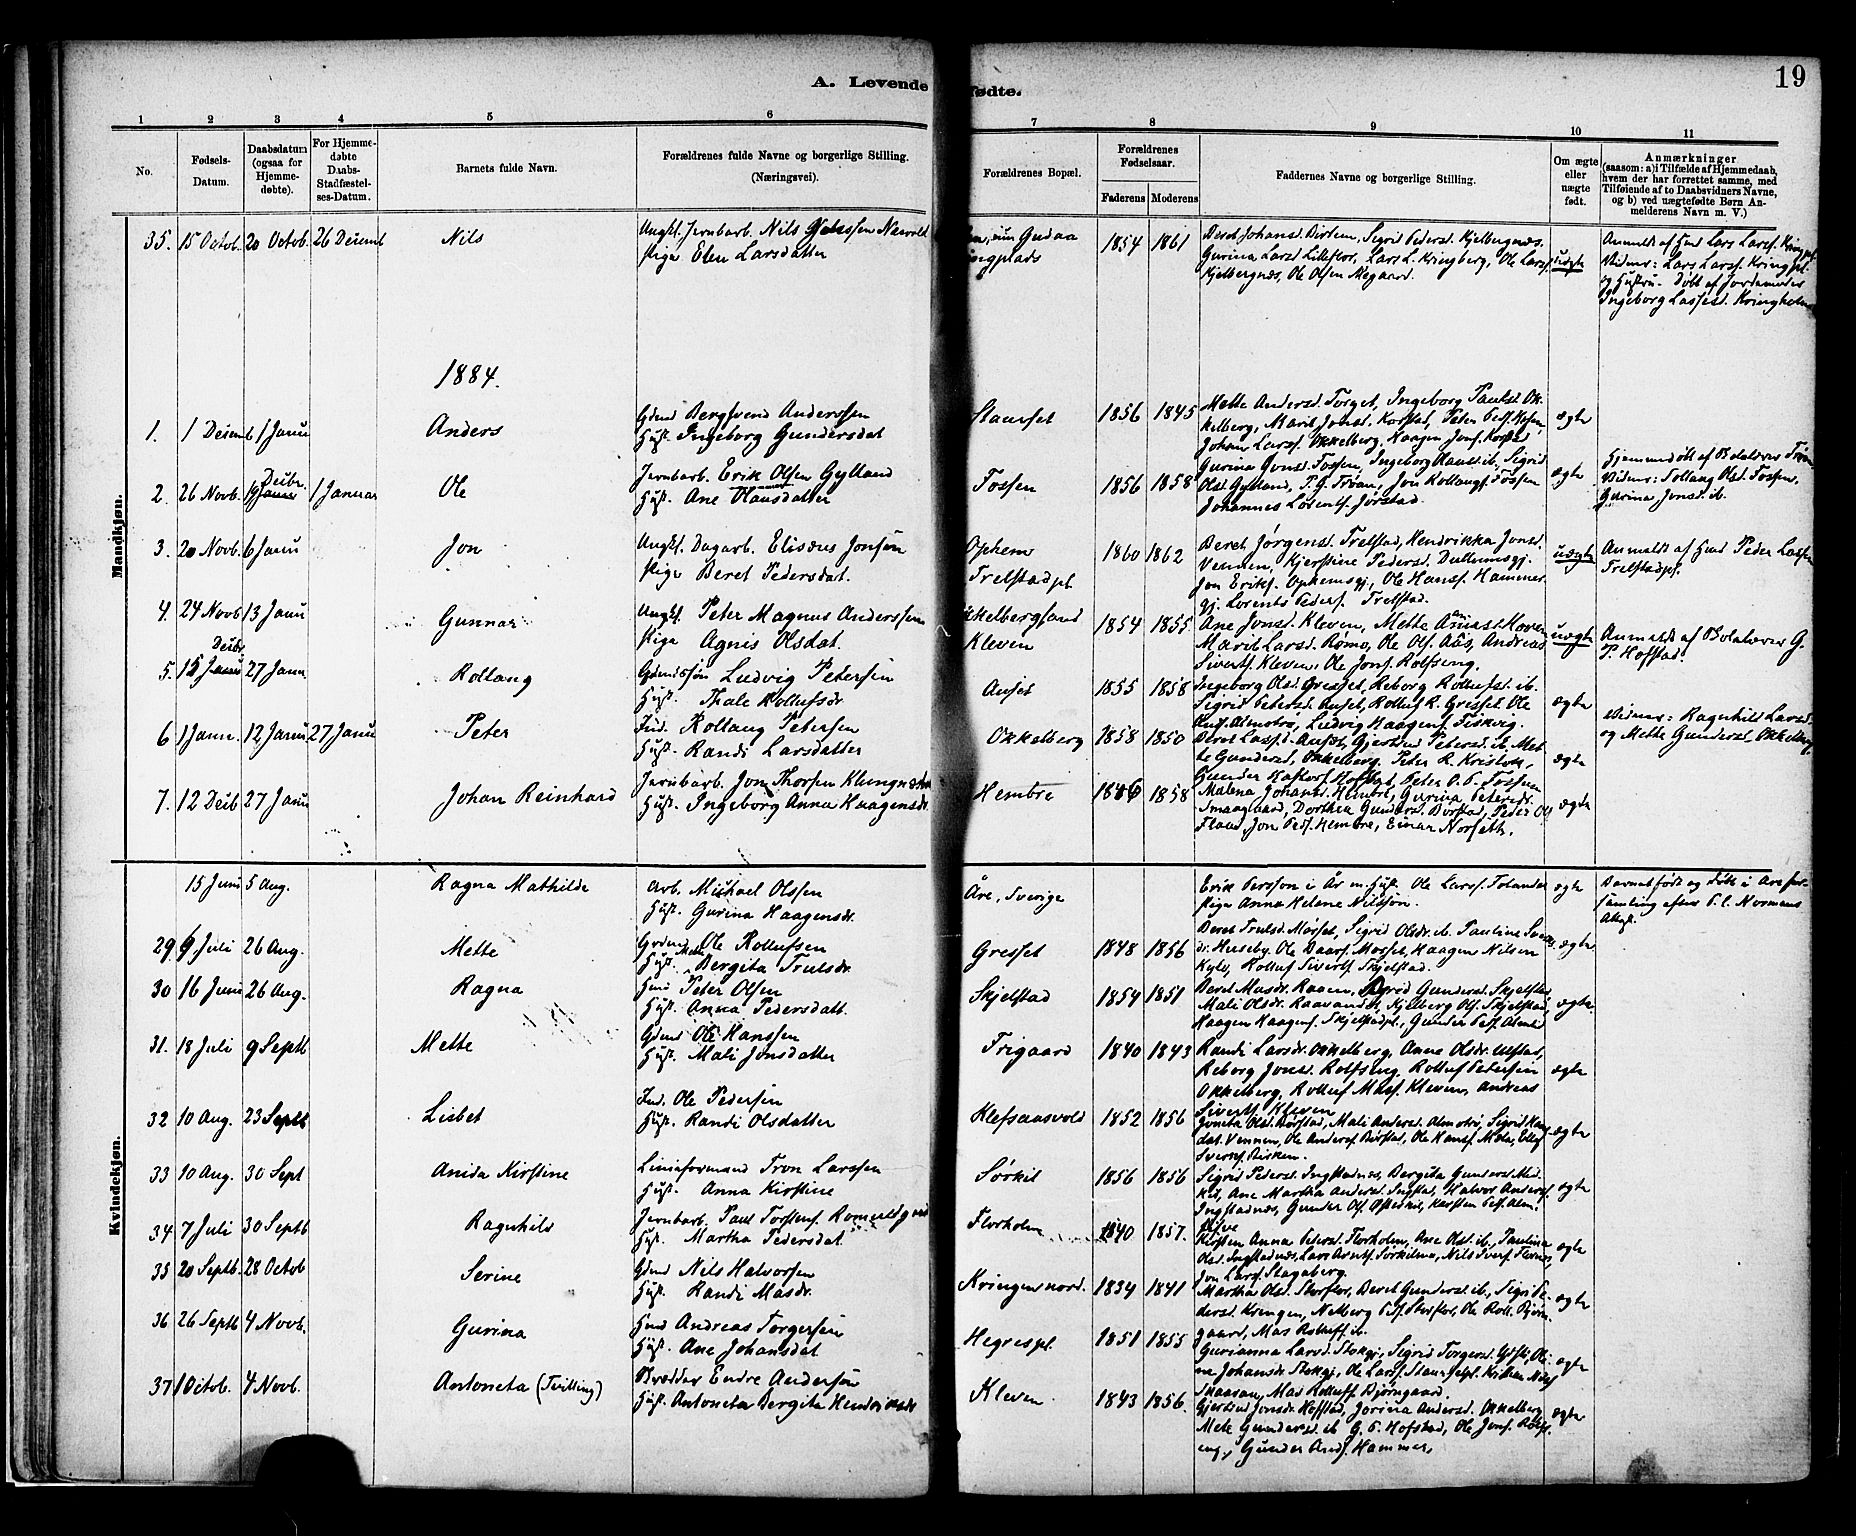 A. Levende Fødte.
19
1 2 3 4 5 6 7 8 9 10 11
No.
Fødsels-Datum.
Daabsdatum (ogsaa for Hjemme-døbte).
For Hjemme-døbte Daabs-Stadfæstel-ses-Datum.
Barnets fulde Navn.
Forældrenes fulde Navne og borgerlige Stilling. (Næringsvei).
Forældrenes Bopæl.
Forældrenes Fødselsaar.
Faderens Moderens
Faddernes Navne og borgerlige Stilling.
Om ægte eller uægte født.
Anmærkninger
(saasom: a) i Tilfælde af Hjemmedaab,
hvem der har forrettet samme, med
Tilføiende af to Daabsvidners Navne,
og b) ved uægtefødte Børn An-
melderens Navn m. V.)
Mandkjøn.
35. 15 Octob. 20 Octob. 26 Decemb Nils
Ungkl. Jernbarb. Nils
Pige Elen Larsdatter
1854 1861
Beret Johansd. Sigrid Pedersd. Kjelbergnæs.
Gurina Larsd. Lilleflor, Lars L. Kringberg, Ole Larss.
Kjelbergnæs, Ole Olsen
uægte
Anmeldt af Lars Larss.
Vidner: Lars Larss.
og Hustru. Døbt af Jordemoder
Ingeborg Lassesd.
1884.
1. 1 Decemb 1 Janu Anders
Gdmd Bergsvend Anderssen
Hust. Ingeborg Gundersdat
Stamset 1856 1845
Mette Andersd. Torget, Ingeborg Paulsd. Ok-
kelberg, Marit Jonsd. Korstad, Peter
Johan Larss. Okkelberg, Haagen Jons. Korstad
ægte
2. 26 Novb. Decbr. 1 Januar Ole
Jernbarb. Erik Olsen Gylland
Hust. Ane Olausdatter
Fossen 1856 1858
Gurina Jonsd. Fossen, Ingeborg Olausd. ib., Sigrid
Olsd. Gylland, P. G. Trøan, Jon Rollaugs. Fossen
Johannes Lorents. Jørstad.
ægte
Hjemmedøbt af
Vidner: Tollaug Olsd. Fossen,
Gurina Jonsd. ib.
3. 20 Novb. 6 Janu Jon
Ungkl. Dagarb. Elisæus Jonsøn
Pige Beret Pedersdat.
Ophem
Trelstadpl. 1860 1862
Beret Jørgensd. Trelstad, Hendrikka Jonsd.
Vennen, Kjerstine Pedersd.
Jon Eriks. Ophemsgj., Ole Hanss. Hammer-
gj. Lorents Peders. Trelstad.
uægte
Anmeldt af Peder Lassen
Trelstadpl.
4. 24 Novb. 13 Janu Gunnar
Ungkl. Peter Magnus Anderssen
Pige Agnis Olsdat.
Okkelbergsand
Kleven 1854 1855
Ane Jonsd. Kleven, Mette
Marit Larsd. Rømo, Ole Ols. Aas, Andreas
Siverts. Kleven, Ole Jons. Rolfseng.
uægte
Anmeldt af G.
P. Hofstad.
5. 15 Decbr. 27 Janu. Rollaug
Gdmdssøn Ludvig Petersen
Hust. Thale Rollufsdr
Auset 1855 1858
Ingeborg Olsd. Gresset, Reborg Rollufsd. ib.
Sigrid Petersd. Auset, Rolluf R. Gresset Ole
Ands. Almotrø, Ludvig Haagens. Fiskvig.
ægte
6 1 Janu. 12 Janu 27 Janu Peter
Ind. Rollaug Petersen
Hust. Randi Larsdatter
Okkelberg 1858 1850
Beret Lassd. Auset, Gjertrud Petersd. ib. Met-
te Gundersd. Okkelberg, Peter R.
Gunder Hofstad, Peter O. P. Fossen
ægte
Vidner: Ragnhild Larsd.
og Mette Gundersd. Okkelberg
7. 12 Decb 27 Janu Johan Reinhard
Jernbarb. Jon Thorsen
Hust. Ingeborg Anna Haagensdr.
Hembre 1846 1858
Malena Johansd. Hembre, Gurina Petersdr.
Smaagaard, Dorthea Gundersd. Borstad, Peder Ols.
Flaad, Jon Peds. Hembre, Einar Norseth.
ægte
Kvindekjøn.
15 Juni 5 Aug. Ragna Mathilde
Arb. Michael Olssen
Hust. Gurina Haagensdr.
Åre, Sverige
Erik Persson i År m. Hust. Ole Larss.
Pige Anna Helene Nilsson.
ægte
Barnet født og døbt i Åre for-
samling efter P. C. Normans
Attest.
29. 9 Juli 26 Aug. Mette
Gdmd Ole Rollufsen
Hust. Bergita Trulsdr.
Gresset 1848 1856
Beret Trulsd. Mosset, Sigrid Olsdr. ib. Pauline
Ole Daars. Mosset, Haagen Nilsen
Rolluf Siverts. Skjelstad.
ægte
30 16 Juni 26 Aug. Ragna
Peter Olsen
Hust. Anna Pedersdatt.
Skjelstad 1854 1851
Beret Masdr. Raaen, Gundersd. Skjelstad
Mali Olsdr. Kjelberg Ols. Skjelstad,
Haagen Haagens. Skjelstadpl., Gunder
ægte.
31. 18 Juli 9 Septb Mette
Gdmd Ole Hanssen
Hust. Mali Jonsdatter
Frigaard 1840 1843
Randi Larsdr. Okkelberg, Anne Olsdr. Ulstad,
Reborg Jonsd. Rolfseng, Rolluf Petersen
Okkelberg, Rolluf Mass. Kleven, Andreas
Siverts. Kleven
ægte
32 10 Aug. 23 Septb Lisbet
Ind. Ole Pedersen
Hust. Randi Olsdatter
Klefsaasvold 1852 1856
Olsd. Børstad, Mali Andersd. Almotrø, Sigrid
Vennen, Ole Anders. Børstad, Ole Hans.
ægte
33 10 Aug. 30 Sept Anida Kirstine
Linieformand Tron Larssen
Hust. Anna Kirstine
Sørkil 1856 1856
Sigrid Pedersd. Ingstadnæs, Bergita Gundersd.
Ane Martha Andersd. Ingstad, Halvor Anders.
Ingstadnæs, Gunder Ols.
ægte
34 7 Juli 30 Septb Ragnhild
Jernbarb. Paul Torstens.
Hust. Martha Pedersdat
Florholm 1840 1857.
Kirsten Anna Petersd. Florholm, Ane Olsd. ib., Paulina
Olsd. Ingstadnæs,
Jon Larss. Stagaberg.
ægte
35 20 Septb. 28 Octob Serine
Gdmd Nils Halvorsen
Hust. Randi Masdr.
Kringen nord. 1834 1841
Martha Olsd. Storflor, Beret Gundersd. ib., Sigri Pe-
dersd. Kringen, Storflor, Ole Roll. Bjørn-
gaard, Mas Rolluff. ib.
ægte
36 26 Septb 4 Novb. Gurina
Andreas Torgersen
Hust. Ane Johansdat
Hegrespl. 1851 1855
Gurianna Larsd. Sigrid Torgersd.
Ole Larss.
Mas Rolluff. Bjørngaard.
ægte
37 1 Octob. 4 Novb. Antoneta (Tvilling)
Endre Andersøn
Hust. Antoneta Bergita Hendriksdr
Kleven 1843 1856.
Gjertrud Jonsdr. Hofstad, Jorina Andersd. Okkelberg
Mette Gundersd. ib G. P. Hofstad, Ole Jons. Rolfs-
eng, Gunder Ands. Hammer,
ægte